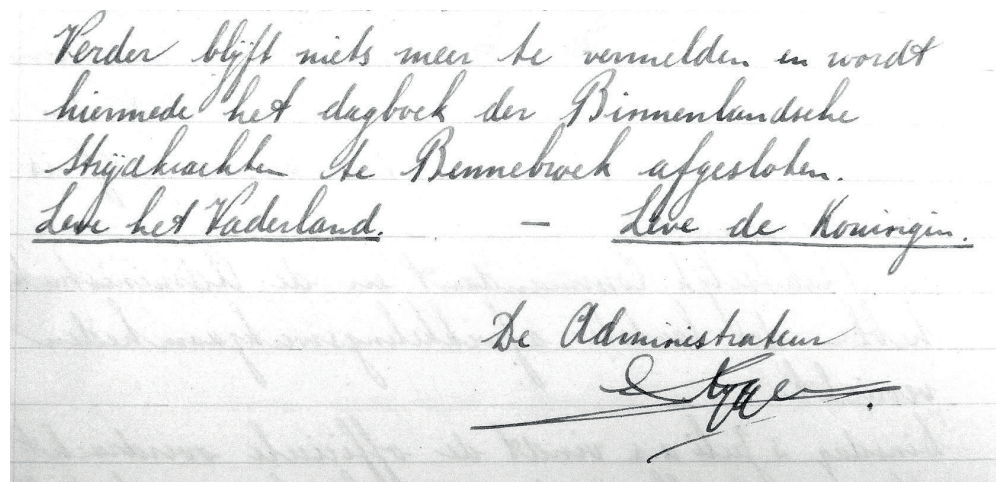 Verder blijft niets meer te vermelden en wordt
hiermede het dagboek der Binnenlandsche
Strijdkrachten te Bennebroek afgesloten.
Leve het Vaderland. — Leve de Koningin.
De Administrateur